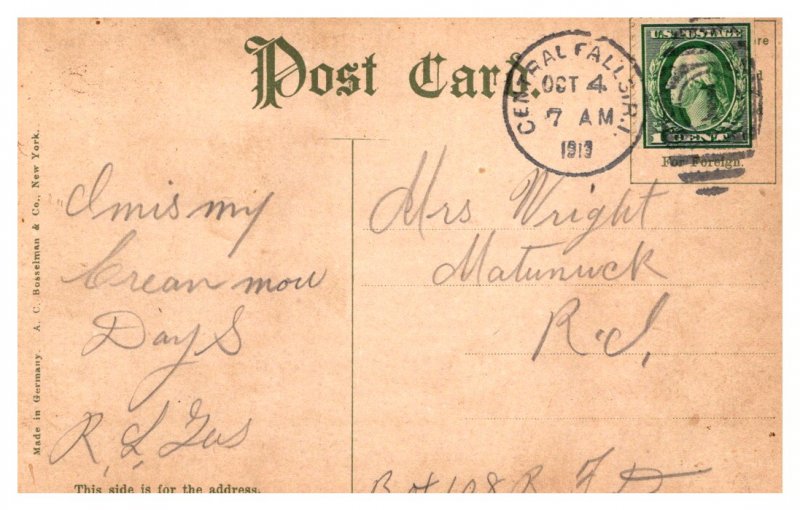 Post Card.
CENTRAL FALLS, R.I.
OCT 4
7 AM
1913
U.S. POSTAGE
1 CENT
For Foreign.
Made in Germany. A. C. Bosselman & Co., New York.
I mis my
Crean mou
Days
R. L. Gus
This side is for the address.
Mrs Wright
Matunuck
R. I.
Box 108 R. F. D